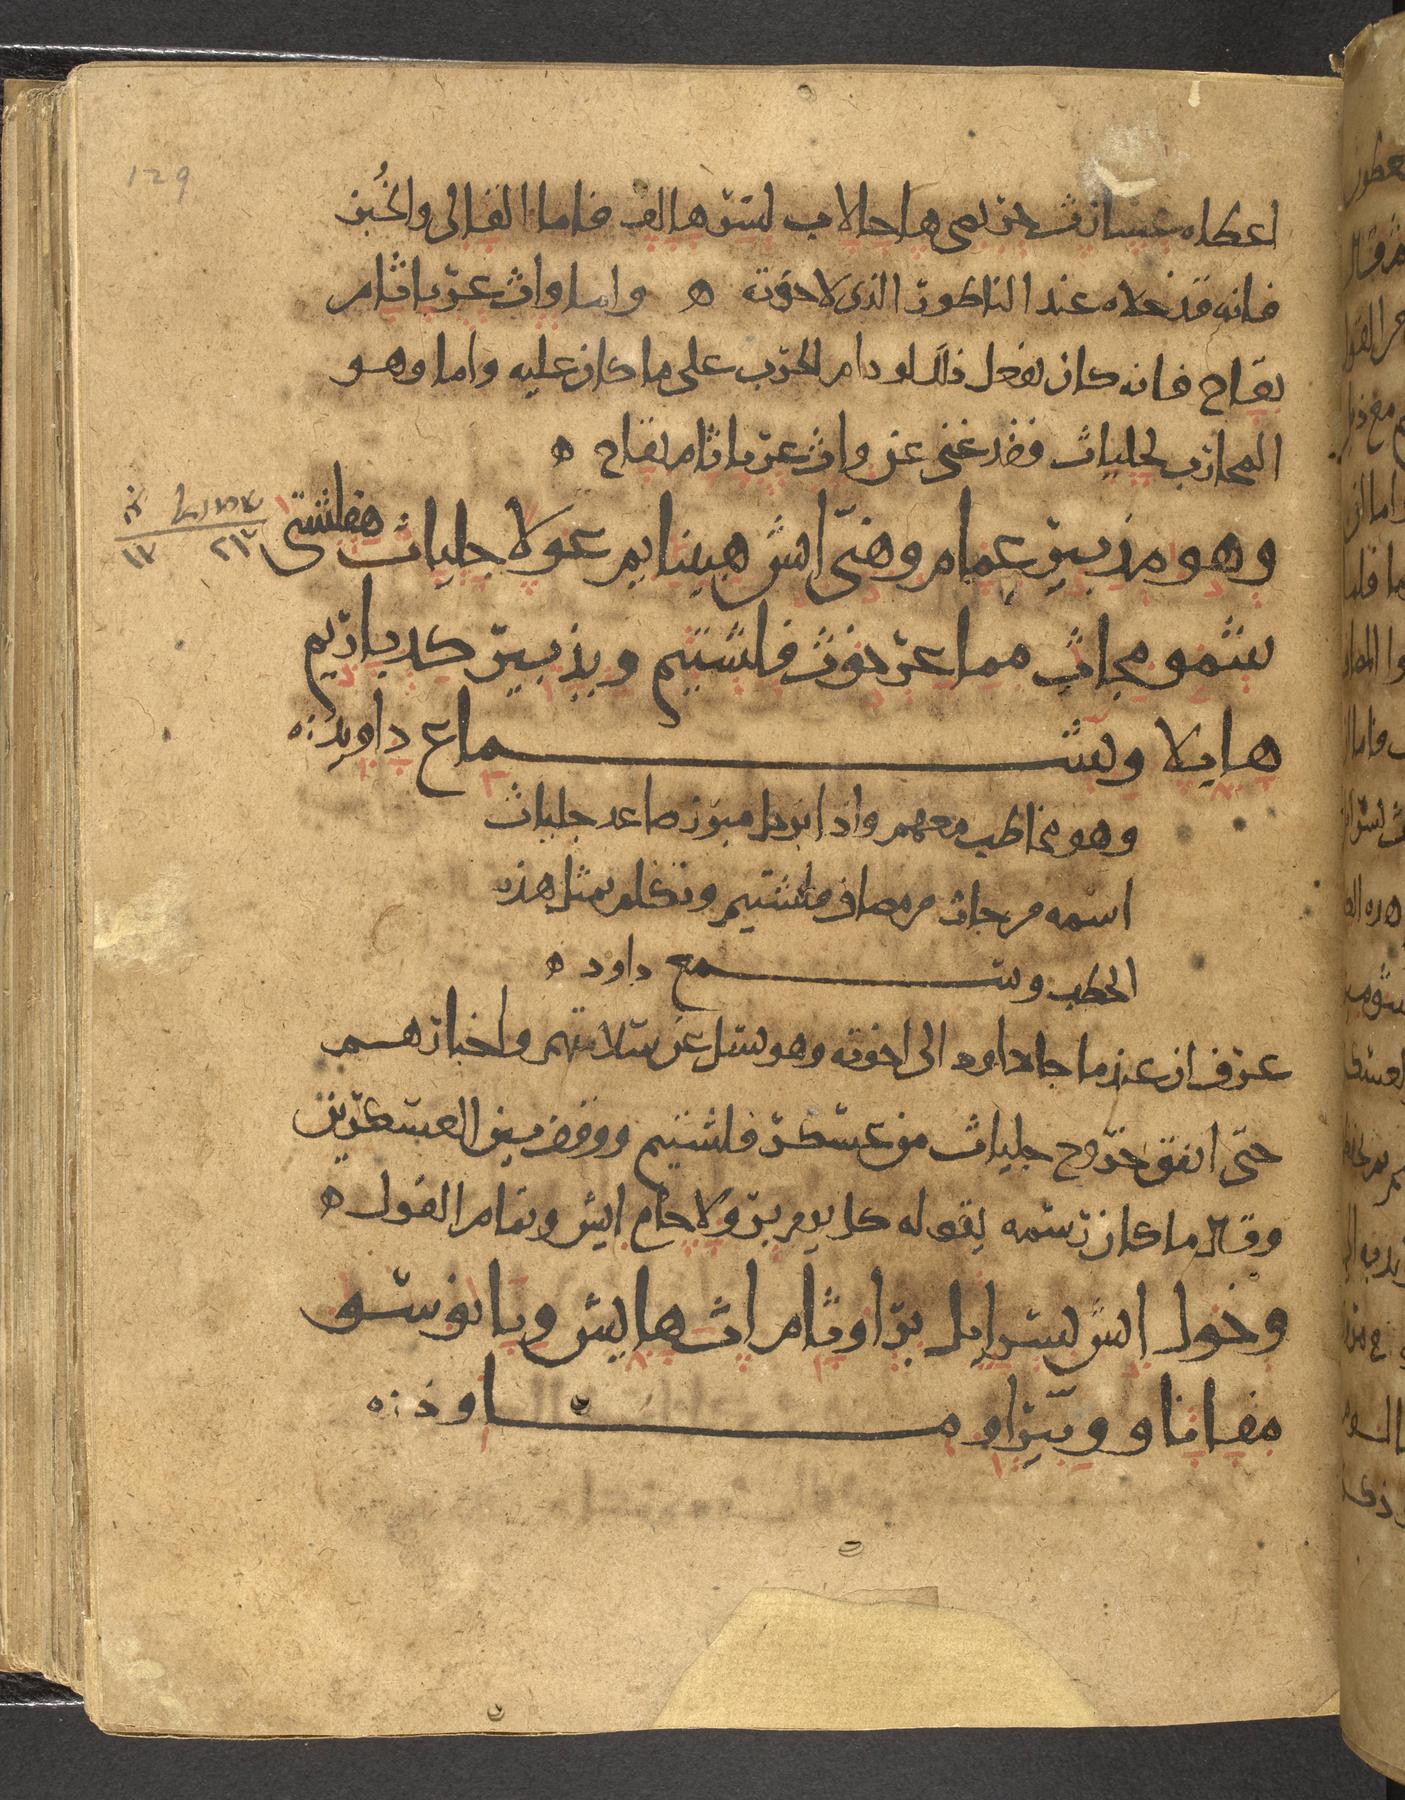 129
اعطاه عساذث حرىصى هاحالاب لسر هالف فاما القالى والخُبز
فانه قد خلاه عند الناطور الذى لاخوته ه واما واث عرباثام
بقاح فانه كان يفعل ذلك لو دام الحرب على ما كان عليه واما وهو
المحارب لجلياث فقد غنى عن واث عرباثام بقاح ه
وهو مذبير عمام وهنى اش هبينايم عولا جلياث هفلشتى
شمو مجاث مما عرخوث فلشتيم ويذبير كدباريم
هايلا ويشماع داويذ ه
وهو مخاطب معهم واذا برجل مبرز صاعد جلياث
اسمه من جاث من مصاف فلشتيم وتكلم بمثل هذه
الخطب وسمع داود ه
عرف ان عند ما جا داود الى اخوته وهو يسل عن سلامتهم واخبارهم
حتى اتفق خروج جلياث من عسكر فلشتيم ووقف بين العسكرين
وقال ما كان رسمه يقوله كل يوم برو لاحام ايش وتمام القول ه
وخول اش يسرايل براوثام اث هايش ويانوسو
مفاناو وييراو ماوذ ه